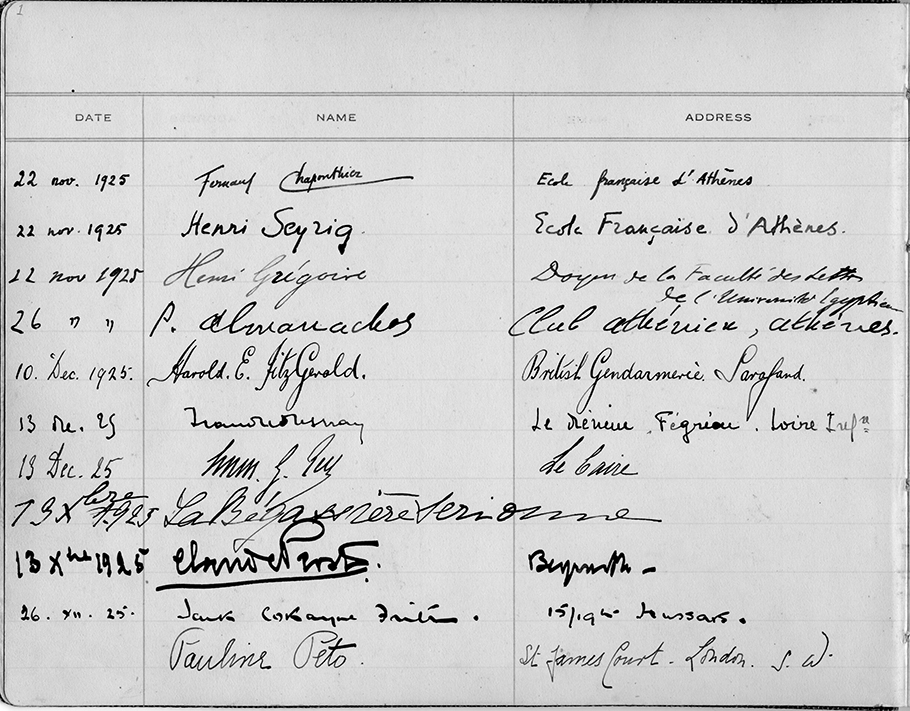 1
DATE NAME ADDRESS
22 nov. 1925 Fernand Chapouthier Ecole française d'Athènes
22 nov. 1925 Henri Seyrig. Ecole Française d'Athènes.
22 nov 1925 Henri Grégoire Doyen de la Faculté des Lettres
de l'Université Egyptienne
26 " " P. Almanachos Club athénien, athènes.
10. Dec. 1925. Harold. E. FitzGerald. British Gendarmerie. Sarafand.
13 Dec. 25 Le Fégréac. Loire Infre
13 Dec. 25 G. Le Caire
13 Xbre 1925 La Bégassière
13 Xbre 1925 Claude Prost. Beyrouth -
26. XII. 25. 15/19th Hussars.
Pauline Peto. St James Court. London. S. W.